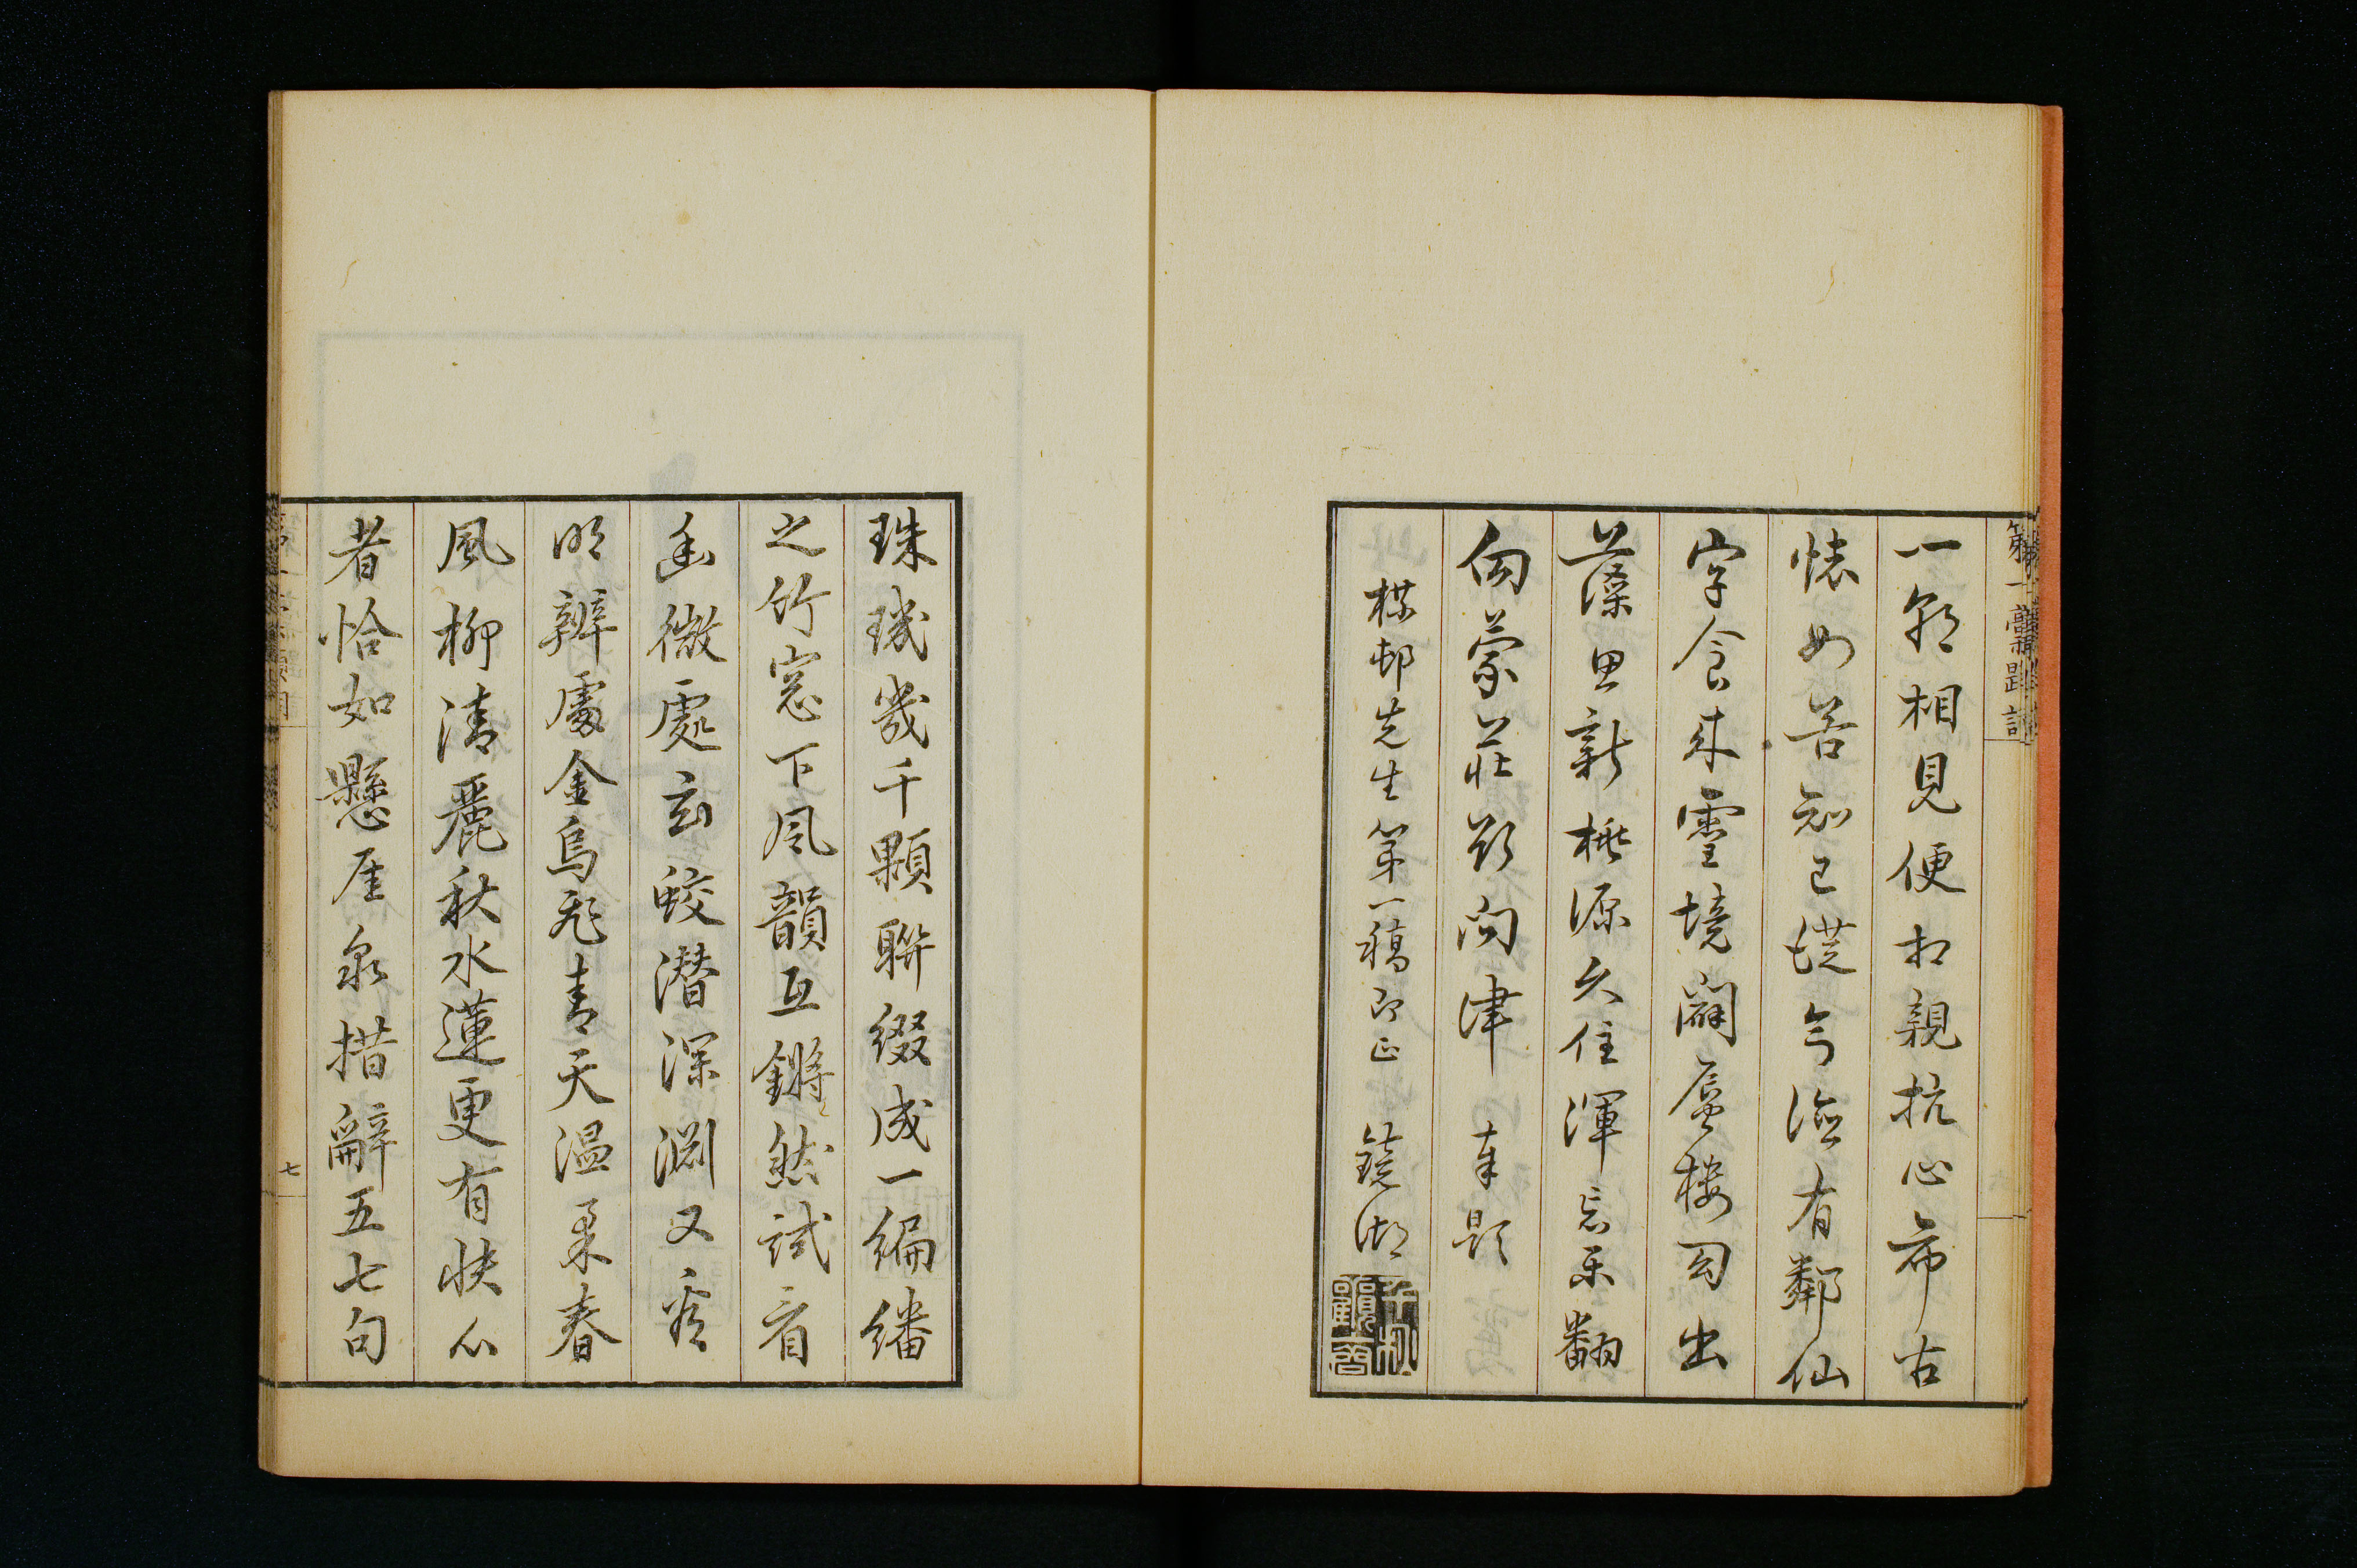 一朝相見便相親抗心希古
懷如昔知己從今證有鄰仙
字食來靈境闢蜃樓幻出
藻思新桃源久住渾忘樂翻
向蒙莊欲問津 奉題
楳邨先生第一稿即正 鏡湖
珠璣幾千顆聯綴成一編繙
之竹窓下風韻互鏘然試看
幽微處玄蛟潛深淵又看
明辨處金烏飛青天溫柔春
風柳清麗秋水蓮更有快心
者恰如懸厓泉措辭五七句
七